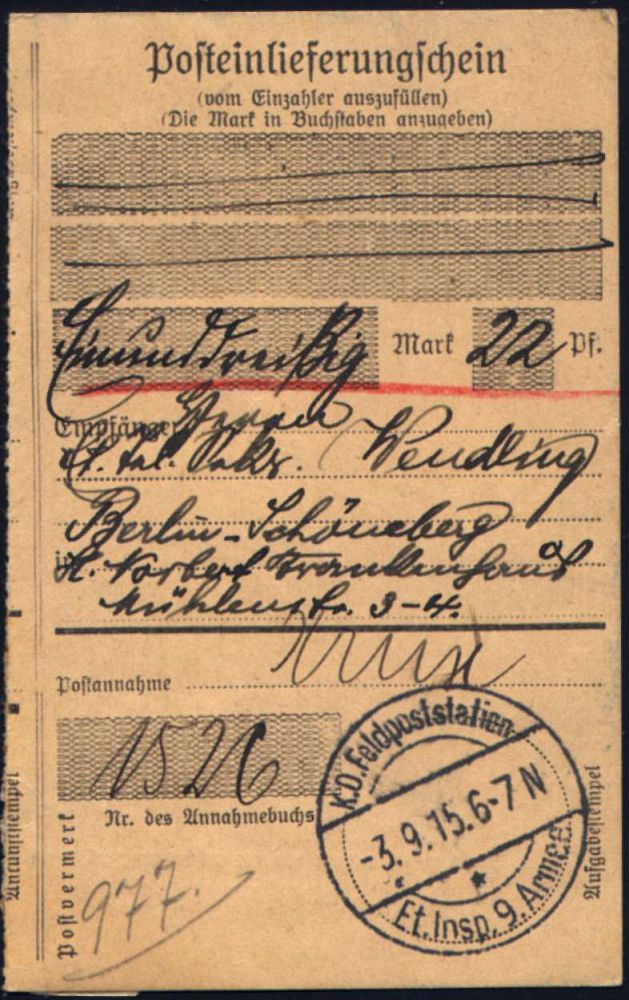 Posteinlieferungschein
(vom Einzahler auszufüllen)
(Die Mark in Buchstaben anzugeben)
Einunddreißig Mark 22 Pf.
Empfänger Herrn
Wendling
Berlin-Schöneberg
St. Norbert Krankenhaus
Mühlenstr. 3-4.
Postannahme
1526
Nr. des Annahmebuchs
Postvermerk
977.
K.D. Feldpoststation
-3.9.15.6-7N
Et. Insp. 9. Armee.
Aufgabestempel